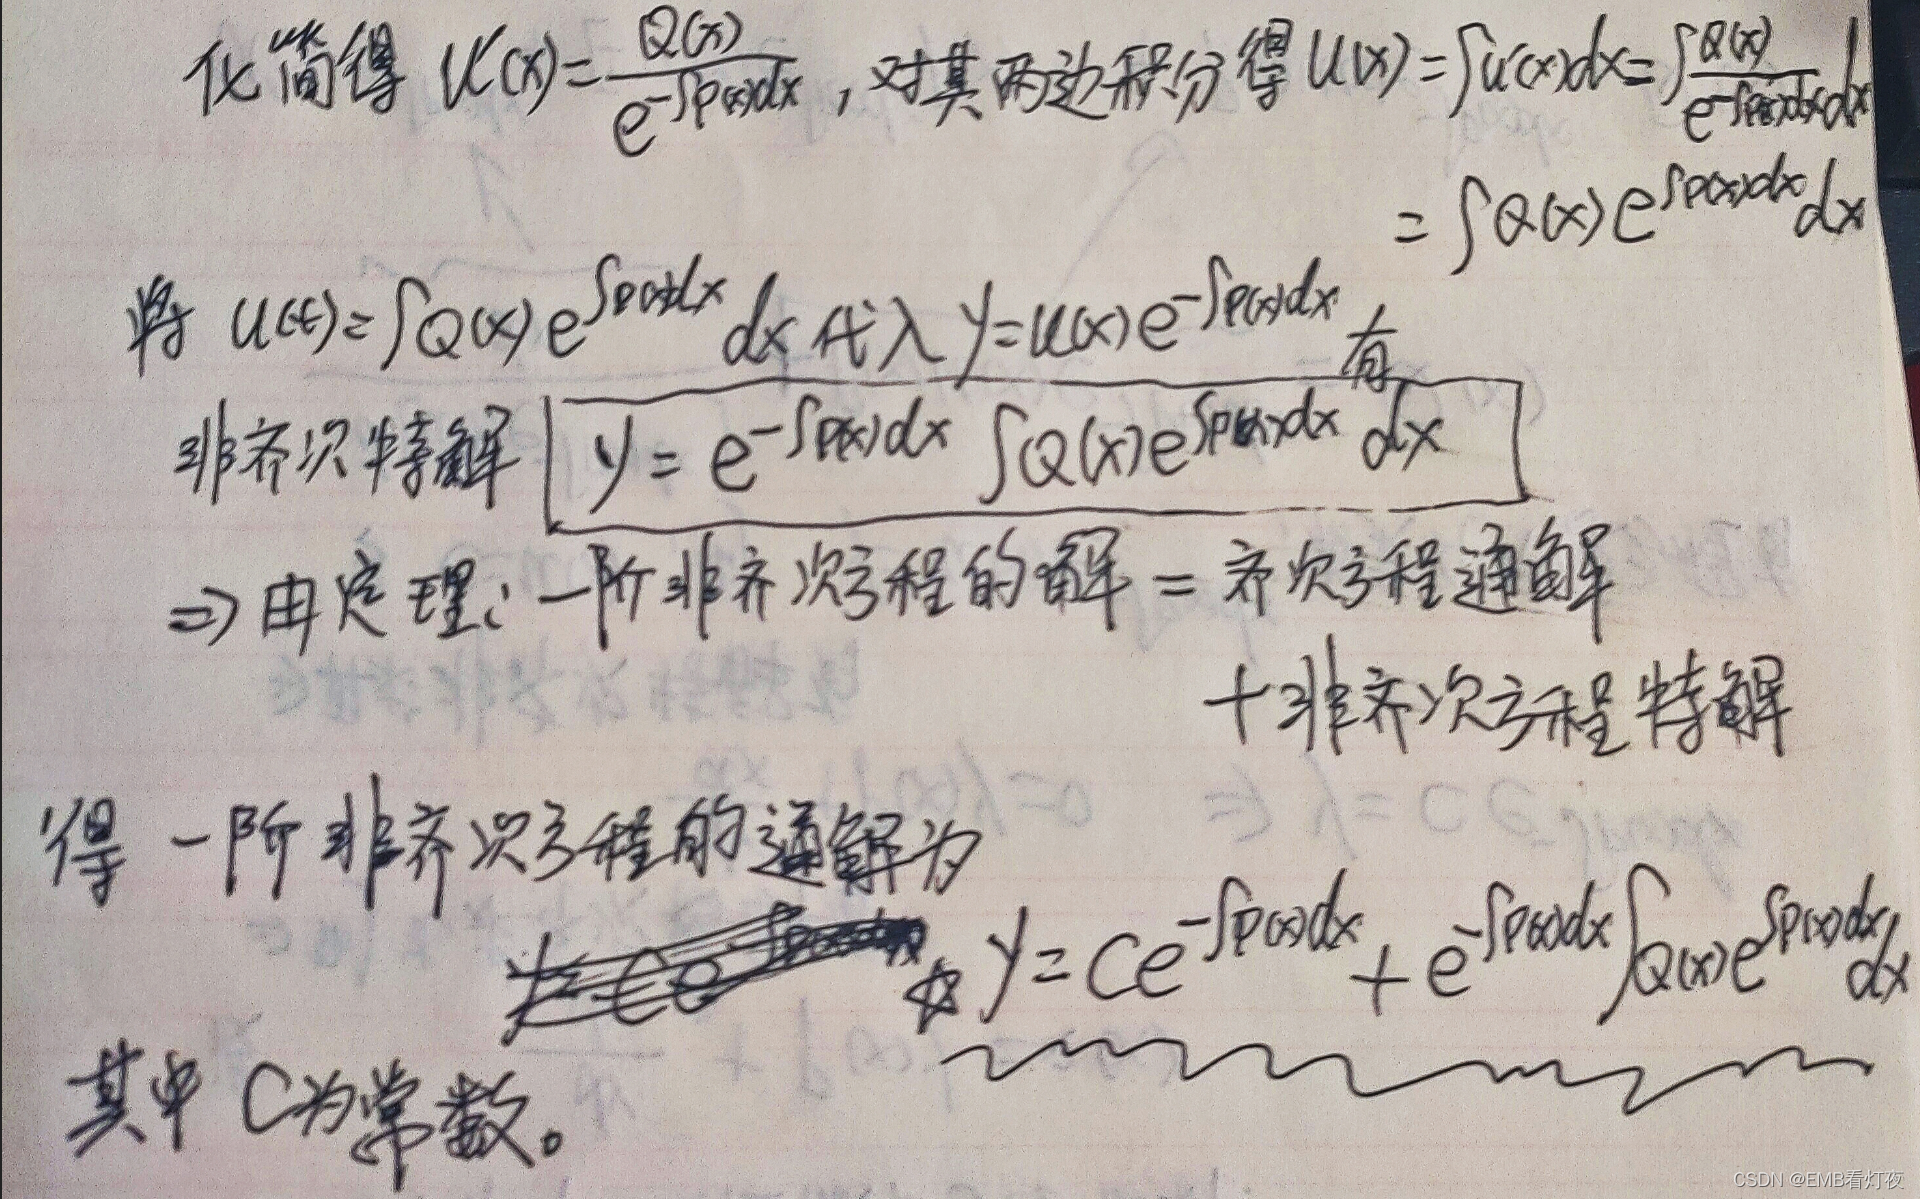 化简得 u'(x)=Q(x)/e^{-∫p(x)dx}，对其两边积分得 u(x)=∫u'(x)dx=∫Q(x)/e^{-∫p(x)dx}dx
=∫Q(x)e^{∫p(x)dx}dx
将 u(x)=∫Q(x)e^{∫p(x)dx}dx 代入 y=u(x)e^{-∫p(x)dx} 有
非齐次特解 y=e^{-∫p(x)dx} ∫Q(x)e^{∫p(x)dx}dx
⇒由定理：一阶非齐次方程的解=齐次方程通解
+非齐次方程特解
得 一阶非齐次方程的通解为
☆ y=Ce^{-∫p(x)dx}+e^{-∫p(x)dx}∫Q(x)e^{∫p(x)dx}dx
其中C为常数。
CSDN @EMB看灯夜